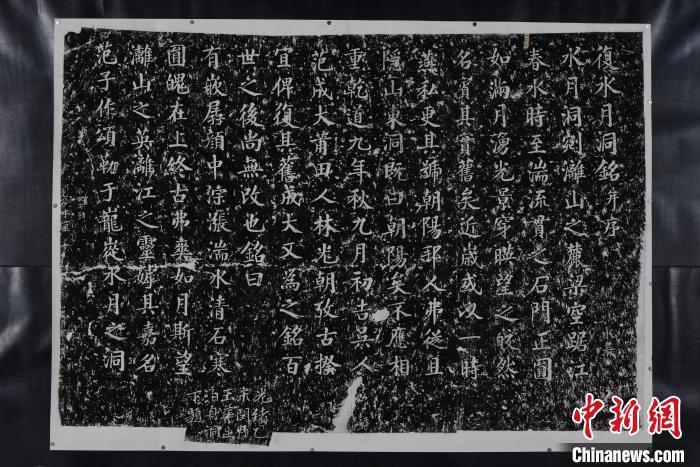 復水月洞銘并序
水月洞剜灕山之麓梁空踞江
春水時至湍流貫之石門正圓
如滿月湧光景穿映望之皎然
名賓其實舊矣近歲或以一時
燕私更其號朝陽邦人弗從且
隱山東洞既曰朝陽矣不應相
重乾道九年秋九月初吉吳人
范成大莆田人林光朝攷古揆
宜俾復其舊成大又為之銘百
世之後尚無改也銘曰
有嵌孱顏中淙漲湍水清石寒
圓魄在上終古弗爽如月斯望
灕山之英灕江之靈嫭其嘉名
范子作頌勒于龍嵸水月之洞
光緒乙
中新网
Chinanews.com